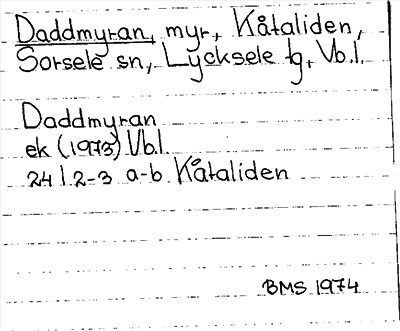 Daddmyran, myr, Kåtaliden,
Sorsele sn, Lycksele lg, Vb.l.
Daddmyran
ek (1973) Vb.l
24 I 2-3 a-b Kåtaliden
BMS 1974